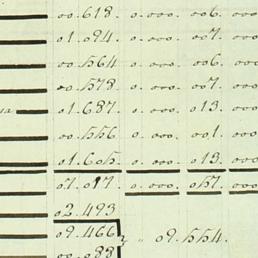 00.618. 0.000. 006. 000
01.094. 0.000. 007. 000
00.564. 0.000. 006. 000
00.578. 0.000. 007. 000
01.687. 0.000. 013. 000
00.556. 0.000. 001. 000
01.605. 0.000. 013. 000
07.017. 0.000. 057. 000
02.493
09.466 } " 09.554.
00.088